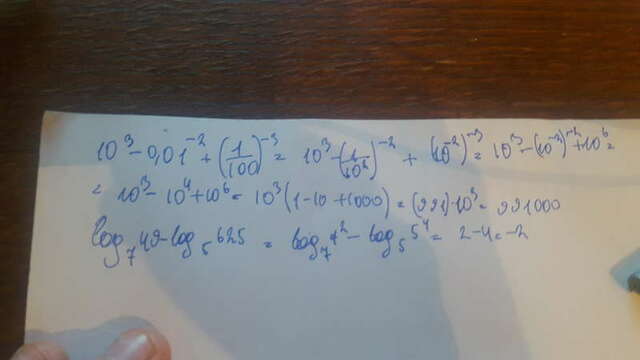 10³ - 0,01⁻² + (1/100)⁻³ = 10³ - (1/10²)⁻² + (10⁻²)⁻³ = 10³ - (10⁻²)⁻² + 10⁶ =
= 10³ - 10⁴ + 10⁶ = 10³(1 - 10 + 1000) = (991)·10³ = 991000
log₇49 - log₅625 = log₇7² - log₅5⁴ = 2 - 4 = -2